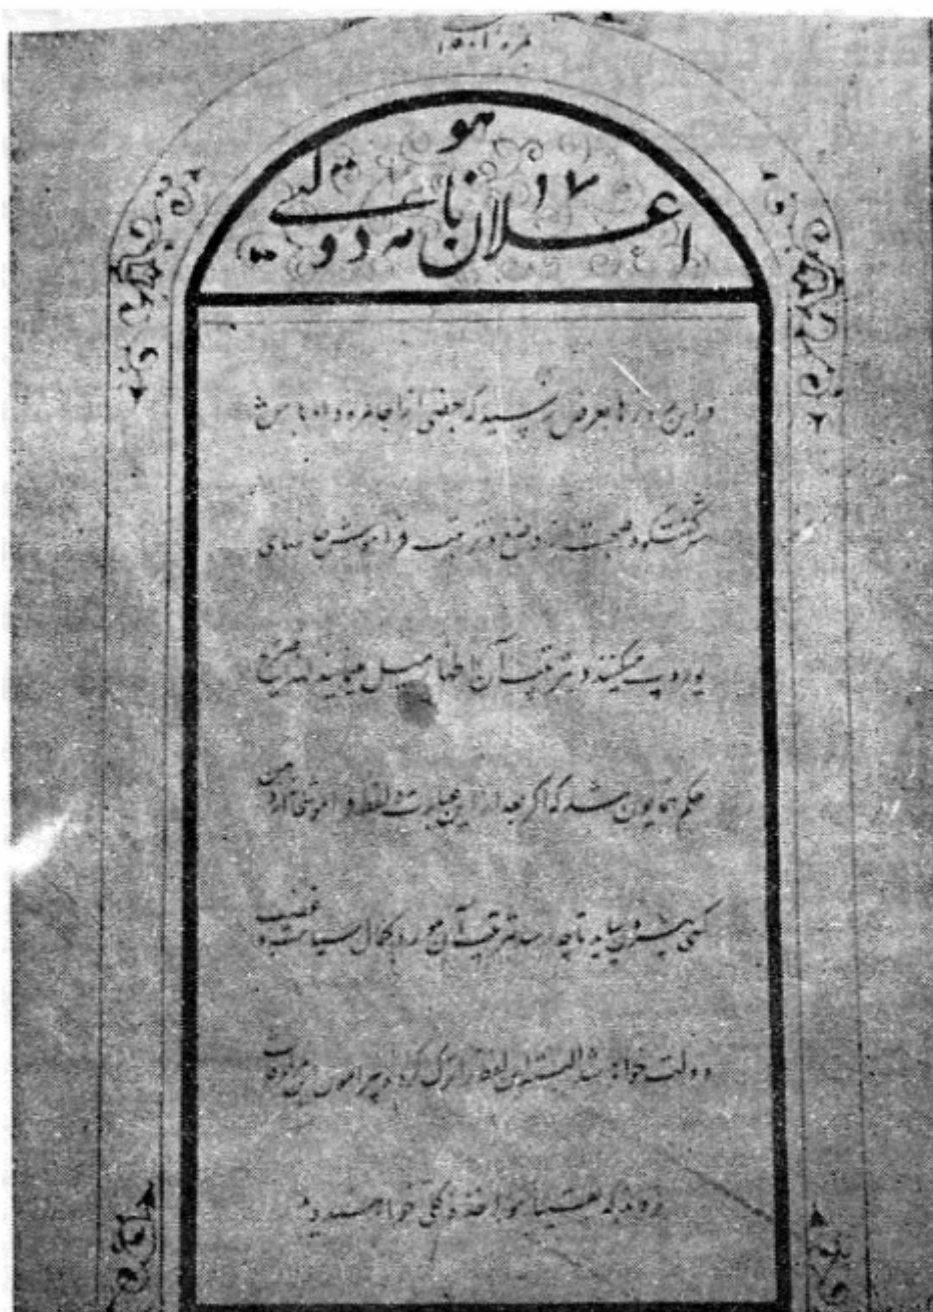 نمره ۱۵۰۱
هو
۱۷
اعلان نامه دولتی
در این روزها بعرض رسید که بعضی از اجامره و اوباش شهر
گفتگو و صحبت از وضع و ترتیب فراموش خانهای
یوروپ میکنند و بترتیب آن اظهار میل مینمایند لهذا صریح
حکم همایون شد که اگر بعد از این عبارت و لفظ فراموشخانه از دهن
کسی بیرون بیاید تا چه رسد بترتیب آن مورد کمال سیاست و غضب
دولت خواهد شد البته این لفظ را ترک کرده پیرامون این مزخرفات
نروند که یقیناً مواخذه کلی خواهند دید